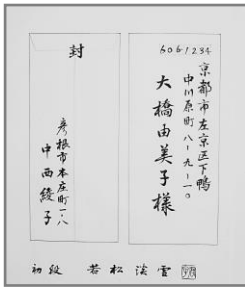 606 1234
京都市左京区下鴨
中川原町八-九-一〇
大橋由美子様
封
彦根市本庄町一-八
中西綾子
初段 若松淡雪